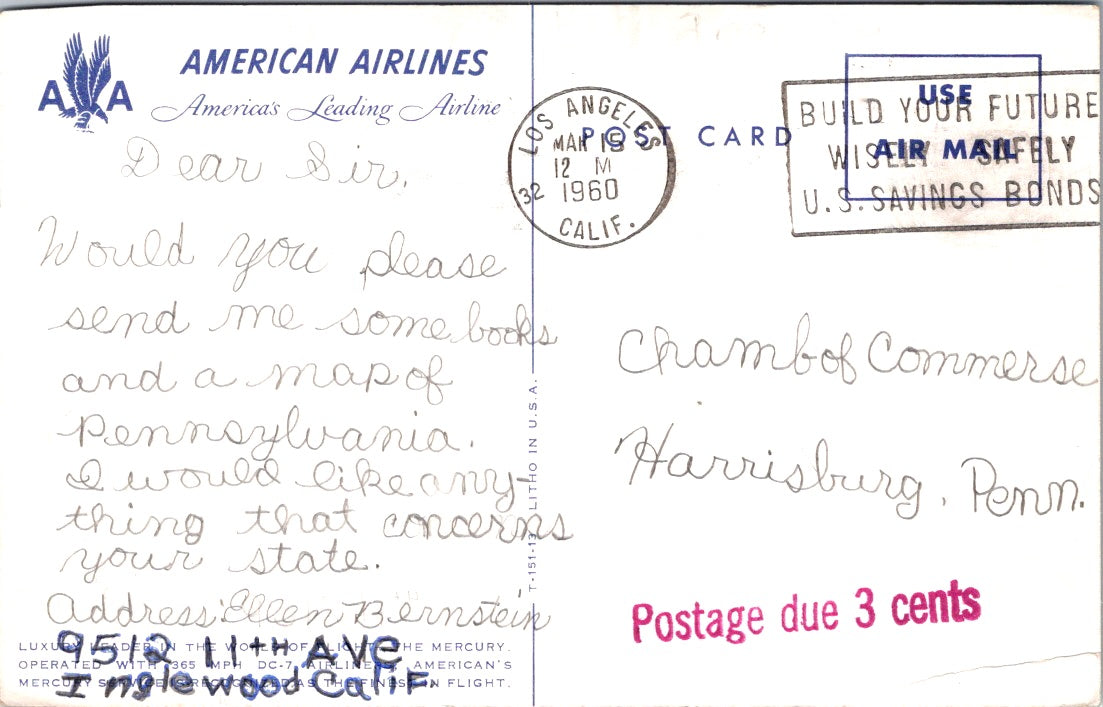 AMERICAN AIRLINES
A A
America's Leading Airline
Dear Sir,
Would you please
send me some books
and a map of
Pennsylvania.
I would like any-
thing that concerns
your state.
Address: Ellen Bernstein
9512 11TH AVE
Inglewood Calif.
LUXURY LEADER IN THE WORLD OF FLIGHT, THE MERCURY.
OPERATED WITH 365 MPH DC-7 AIRLINERS, AMERICAN'S
MERCURY SERVICE IS RECOGNIZED AS THE FINEST IN FLIGHT.
T-151-13 LITHO IN U.S.A.
POST CARD
LOS ANGELES
MAR 15
12 M
1960
32
CALIF.
USE
AIR MAIL
BUILD YOUR FUTURE
WISELY SAFELY
U.S. SAVINGS BONDS
Chamb of Commerse
Harrisburg, Penn.
Postage due 3 cents